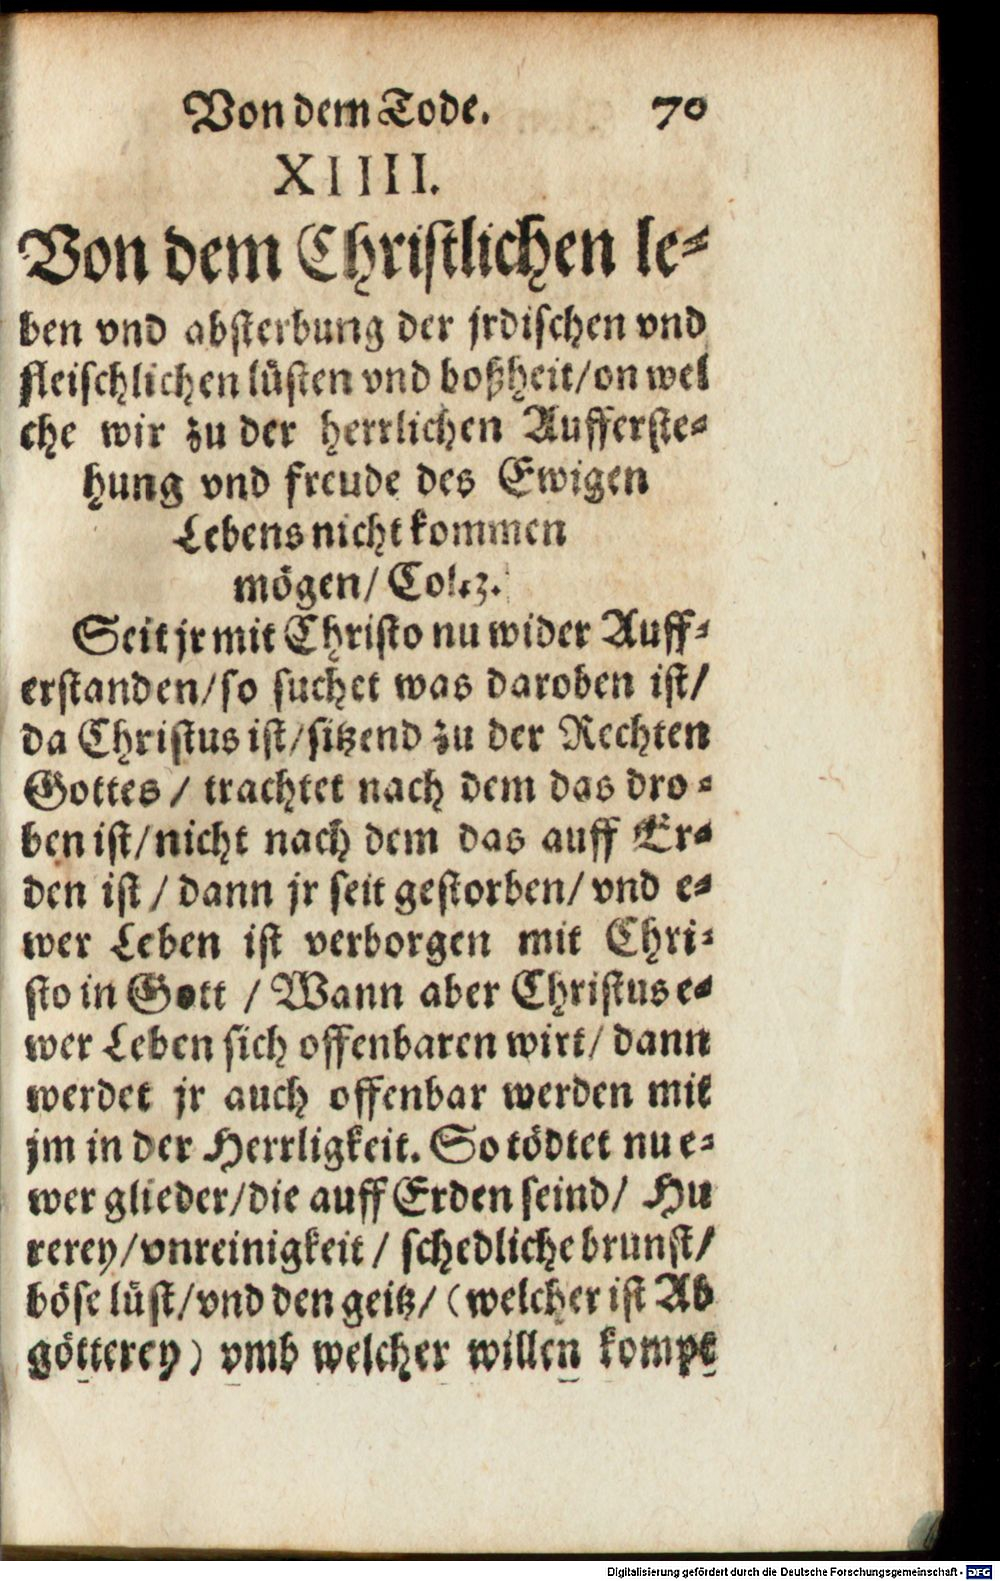 Von dem Tode. 70
XIIII.
Von dem Christlichen le-
ben vnd absterbung der jrdischen vnd
fleischlichen lüsten vnd boßheit/on wel
che wir zu der herrlichen Aufferste-
hung vnd freude des Ewigen
Lebens nicht kommen
mögen/ Col.3.
Seit jr mit Christo nu wider Auff-
erstanden/so suchet was daroben ist/
da Christus ist/sitzend zu der Rechten
Gottes/ trachtet nach dem das dro-
ben ist/nicht nach dem das auff Er-
den ist/ dann jr seit gestorben/ vnd e-
wer Leben ist verborgen mit Chri-
sto in Gott / Wann aber Christus e-
wer Leben sich offenbaren wirt/ dann
werdet jr auch offenbar werden mit
jm in der Herrligkeit. So tödtet nu e-
wer glieder/die auff Erden seind/ Hu
rerey/vnreinigkeit/ schedliche brunst/
böse lüst/vnd den geitz/ (welcher ist Ab
götterey) vmb welcher willen kompt
Digitalisierung gefördert durch die Deutsche Forschungsgemeinschaft - DFG